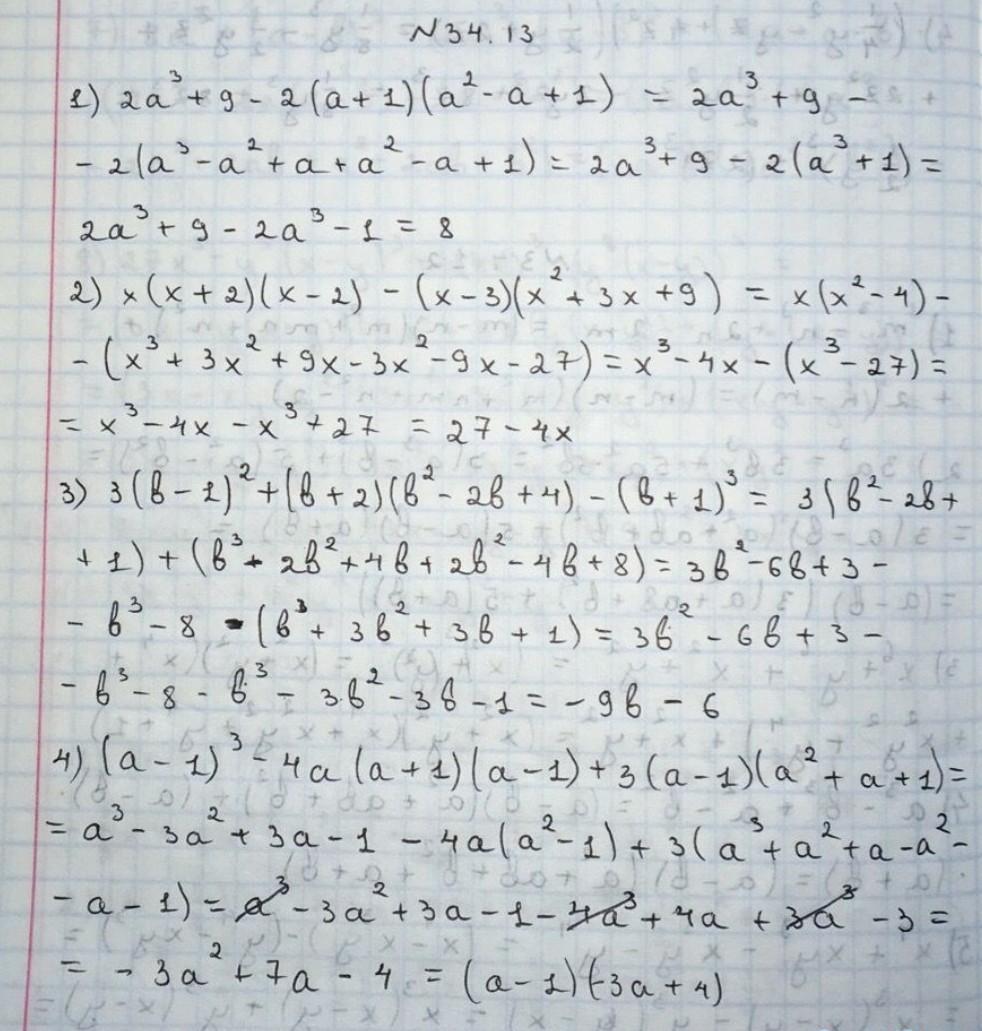 N34.13
1) 2a³ + 9 - 2(a+1)(a² - a + 1) = 2a³ + 9 -
- 2(a³ - a² + a + a² - a + 1) = 2a³ + 9 - 2(a³ + 1) =
2a³ + 9 - 2a³ - 1 = 8
2) x(x+2)(x-2) - (x-3)(x² + 3x + 9) = x(x² - 4) -
- (x³ + 3x² + 9x - 3x² - 9x - 27) = x³ - 4x - (x³ - 27) =
= x³ - 4x - x³ + 27 = 27 - 4x
3) 3(в-1)² + (в+2)(в² - 2в + 4) - (в+1)³ = 3(в² - 2в +
+ 1) + (в³ - 2в² + 4в + 2в² - 4в + 8) = 3в² - 6в + 3 -
- в³ - 8 - (в³ + 3в² + 3в + 1) = 3в² - 6в + 3 -
- в³ - 8 - в³ - 3в² - 3в - 1 = - 9в - 6
4) (a-1)³ - 4a(a+1)(a-1) + 3(a-1)(a² + a + 1) =
= a³ - 3a² + 3a - 1 - 4a(a² - 1) + 3(a³ + a² + a - a² -
- a - 1) = a³ - 3a² + 3a - 1 - 4a³ + 4a + 3a³ - 3 =
= - 3a² + 7a - 4 = (a-1)(-3a+4)